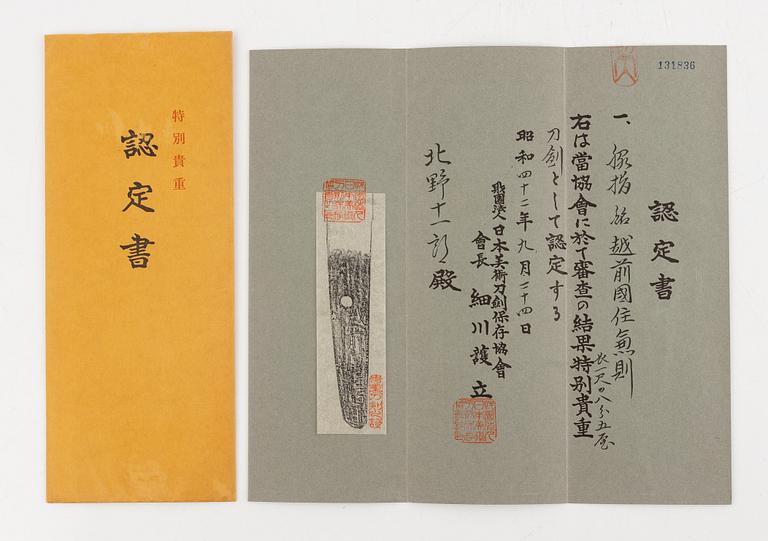 特別貴重
認定書
131836
認定書
一、脇指 銘 越前國住兼則
長一尺〇八分五厘
右は當協會に於て審査の結果特別貴重
刀劍として認定する
昭和四十二年九月二十四日
財團法人日本美術刀劍保存協會
會長 細川護立
北野十一郎殿